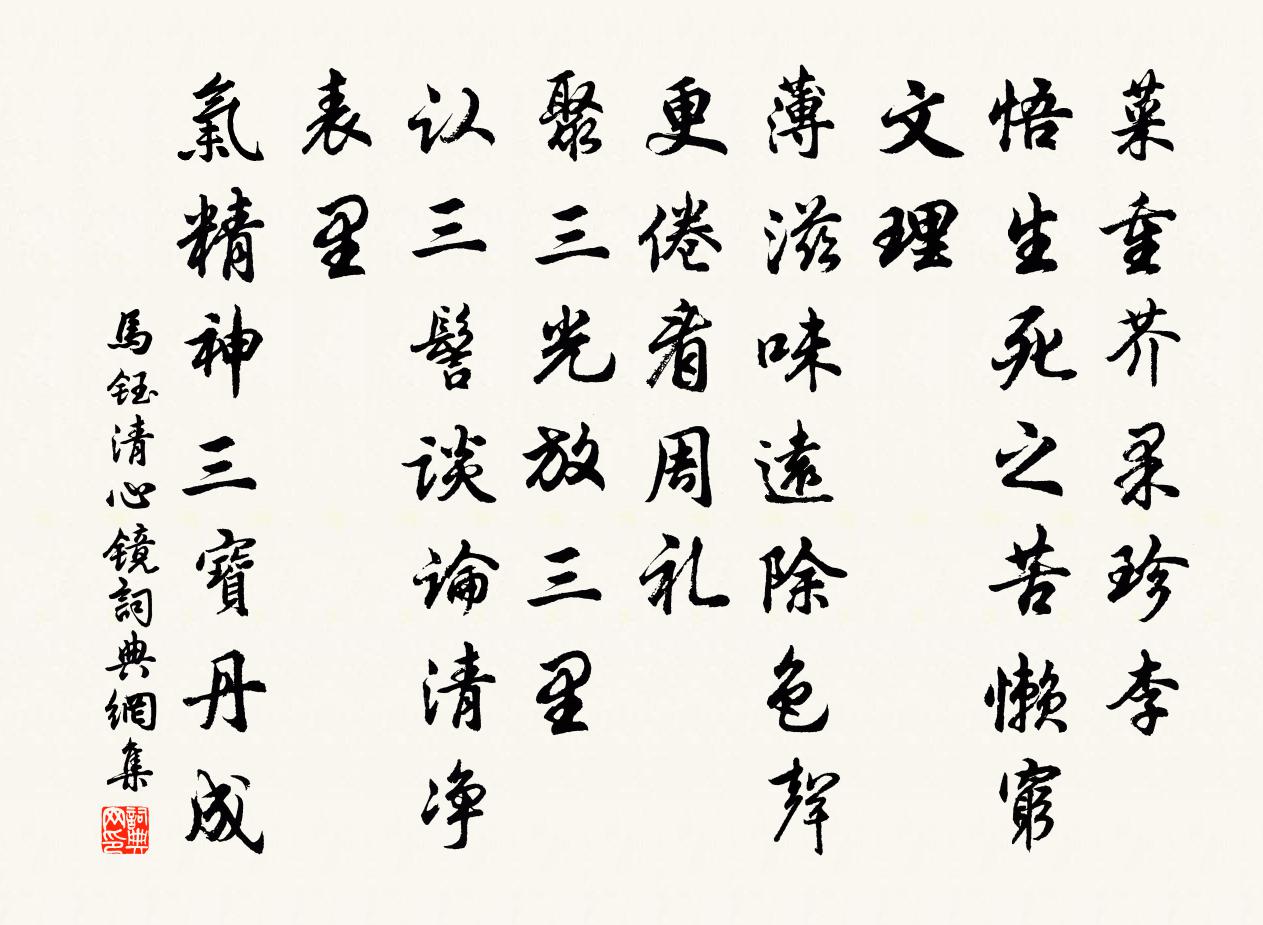 菜重芥果珍李
悟生死之苦懒窮
文理
薄滋味遠除色聲
更倦看周礼
聚三光放三里
认三髻谈論清净
表里
氣精神三寶丹成
馬鈺清心鏡詞典網集
詞典網印